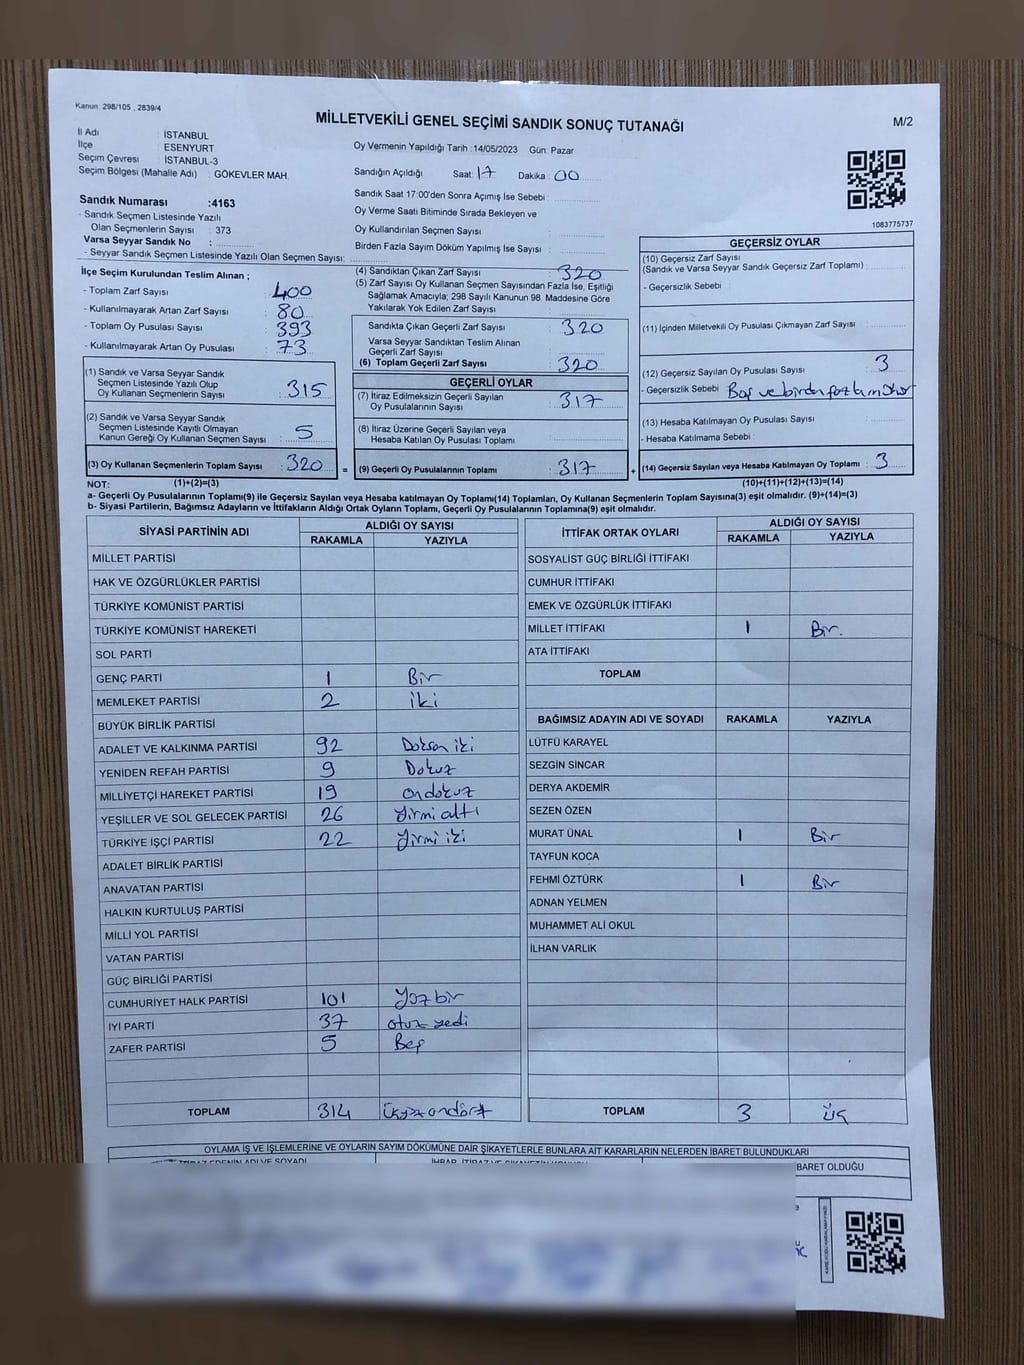 Kanun: 298/105 , 2839/4
MİLLETVEKİLİ GENEL SEÇİMİ SANDIK SONUÇ TUTANAĞI
M/2
İl Adı : İSTANBUL
İlçe : ESENYURT
Seçim Çevresi : İSTANBUL-3
Seçim Bölgesi (Mahalle Adı) : GÖKEVLER MAH.
Sandık Numarası :4163
- Sandık Seçmen Listesinde Yazılı
Olan Seçmenlerin Sayısı : 373
Varsa Seyyar Sandık No :
- Seyyar Sandık Seçmen Listesinde Yazılı Olan Seçmen Sayısı:
Oy Vermenin Yapıldığı Tarih :14/05/2023 Gün: Pazar
Sandığın Açıldığı Saat: 17 Dakika: 00
Sandık Saat 17:00'den Sonra Açımış İse Sebebi :
Oy Verme Saati Bitiminde Sırada Bekleyen ve
Oy Kullandırılan Seçmen Sayısı :
Birden Fazla Sayım Döküm Yapılmış İse Sayısı :
1083775737
İlçe Seçim Kurulundan Teslim Alınan ;
- Toplam Zarf Sayısı : 400
- Kullanılmayarak Artan Zarf Sayısı : 80
- Toplam Oy Pusulası Sayısı : 393
- Kullanılmayarak Artan Oy Pusulası : 73
(1) Sandık ve Varsa Seyyar Sandık
Seçmen Listesinde Yazılı Olup
Oy Kullanan Seçmenlerin Sayısı : 315
(2) Sandık ve Varsa Seyyar Sandık
Seçmen Listesinde Kayıtlı Olmayan
Kanun Gereği Oy Kullanan Seçmen Sayısı : 5
(3) Oy Kullanan Seçmenlerin Toplam Sayısı : 320
(4) Sandıktan Çıkan Zarf Sayısı : 320
(5) Zarf Sayısı Oy Kullanan Seçmen Sayısından Fazla İse, Eşitliği
Sağlamak Amacıyla; 298 Sayılı Kanunun 98. Maddesine Göre
Yakılarak Yok Edilen Zarf Sayısı :
Sandıkta Çıkan Geçerli Zarf Sayısı : 320
Varsa Seyyar Sandıktan Teslim Alınan
Geçerli Zarf Sayısı :
(6) Toplam Geçerli Zarf Sayısı : 320
GEÇERLİ OYLAR
(7) İtiraz Edilmeksizin Geçerli Sayılan
Oy Pusulalarının Sayısı : 317
(8) İtiraz Üzerine Geçerli Sayılan veya
Hesaba Katılan Oy Pusulası Toplamı :
= (9) Geçerli Oy Pusulalarının Toplamı : 317
GEÇERSİZ OYLAR
(10) Geçersiz Zarf Sayısı
(Sandık ve Varsa Seyyar Sandık Geçersiz Zarf Toplamı) :
- Geçersizlik Sebebi :
(11) İçinden Milletvekili Oy Pusulası Çıkmayan Zarf Sayısı :
(12) Geçersiz Sayılan Oy Pusulası Sayısı : 3
- Geçersizlik Sebebi : Boş ve birden fazla mühür
(13) Hesaba Katılmayan Oy Pusulası Sayısı :
- Hesaba Katılmama Sebebi :
+ (14) Geçersiz Sayılan veya Hesaba Katılmayan Oy Toplamı : 3
NOT: (1)+(2)=(3) (10)+(11)+(12)+(13)=(14)
a- Geçerli Oy Pusulalarının Toplamı(9) ile Geçersiz Sayılan veya Hesaba katılmayan Oy Toplamı(14) Toplamları, Oy Kullanan Seçmenlerin Toplam Sayısına(3) eşit olmalıdır. (9)+(14)=(3)
b- Siyasi Partilerin, Bağımsız Adayların ve İttifakların Aldığı Ortak Oyların Toplamı, Geçerli Oy Pusulalarının Toplamına(9) eşit olmalıdır.
SİYASİ PARTİNİN ADI ALDIĞI OY SAYISI
RAKAMLA YAZIYLA
MİLLET PARTİSİ
HAK VE ÖZGÜRLÜKLER PARTİSİ
TÜRKİYE KOMÜNİST PARTİSİ
TÜRKİYE KOMÜNİST HAREKETİ
SOL PARTİ
GENÇ PARTİ 1 Bir
MEMLEKET PARTİSİ 2 iki
BÜYÜK BİRLİK PARTİSİ
ADALET VE KALKINMA PARTİSİ 92 Doksan iki
YENİDEN REFAH PARTİSİ 9 Dokuz
MİLLİYETÇİ HAREKET PARTİSİ 19 ondokuz
YEŞİLLER VE SOL GELECEK PARTİSİ 26 yirmi altı
TÜRKİYE İŞÇİ PARTİSİ 22 yirmi iki
ADALET BİRLİK PARTİSİ
ANAVATAN PARTİSİ
HALKIN KURTULUŞ PARTİSİ
MİLLİ YOL PARTİSİ
VATAN PARTİSİ
GÜÇ BİRLİĞİ PARTİSİ
CUMHURİYET HALK PARTİSİ 101 Yüz bir
İYİ PARTİ 37 otuz yedi
ZAFER PARTİSİ 5 Beş
TOPLAM 314 üçyüzondört
İTTİFAK ORTAK OYLARI ALDIĞI OY SAYISI
RAKAMLA YAZIYLA
SOSYALİST GÜÇ BİRLİĞİ İTTİFAKI
CUMHUR İTTİFAKI
EMEK VE ÖZGÜRLÜK İTTİFAKI
MİLLET İTTİFAKI 1 Bir.
ATA İTTİFAKI
TOPLAM
BAĞIMSIZ ADAYIN ADI VE SOYADI RAKAMLA YAZIYLA
LÜTFÜ KARAYEL
SEZGİN SİNCAR
DERYA AKDEMİR
SEZEN ÖZEN
MURAT ÜNAL 1 Bir
TAYFUN KOCA
FEHMİ ÖZTÜRK 1 Bir
ADNAN YELMEN
MUHAMMET ALİ OKUL
İLHAN VARLIK
TOPLAM 3 üç
OYLAMA İŞ VE İŞLEMLERİNE VE OYLARIN SAYIM DÖKÜMÜNE DAİR ŞİKAYETLERLE BUNLARA AİT KARARLARIN NELERDEN İBARET BULUNDUKLARI
BARET OLDUĞU